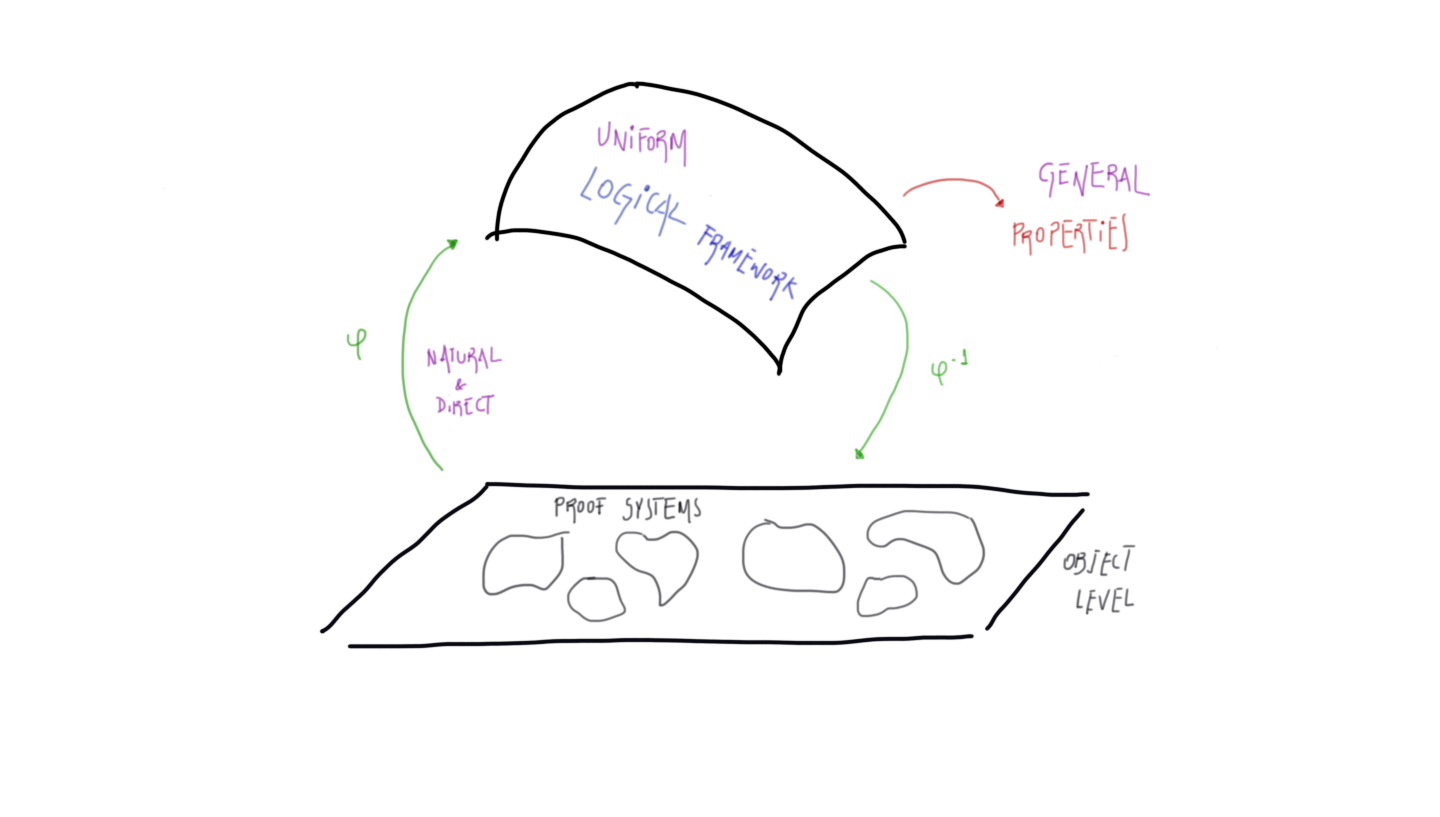 UNiFORM
LOGiCAL FRAMEWORK
GENERAL
PROPERTiES
φ
NATURAL
&
DiRECT
φ⁻¹
PROOF SYSTEMS
OBJECT
LEVEL